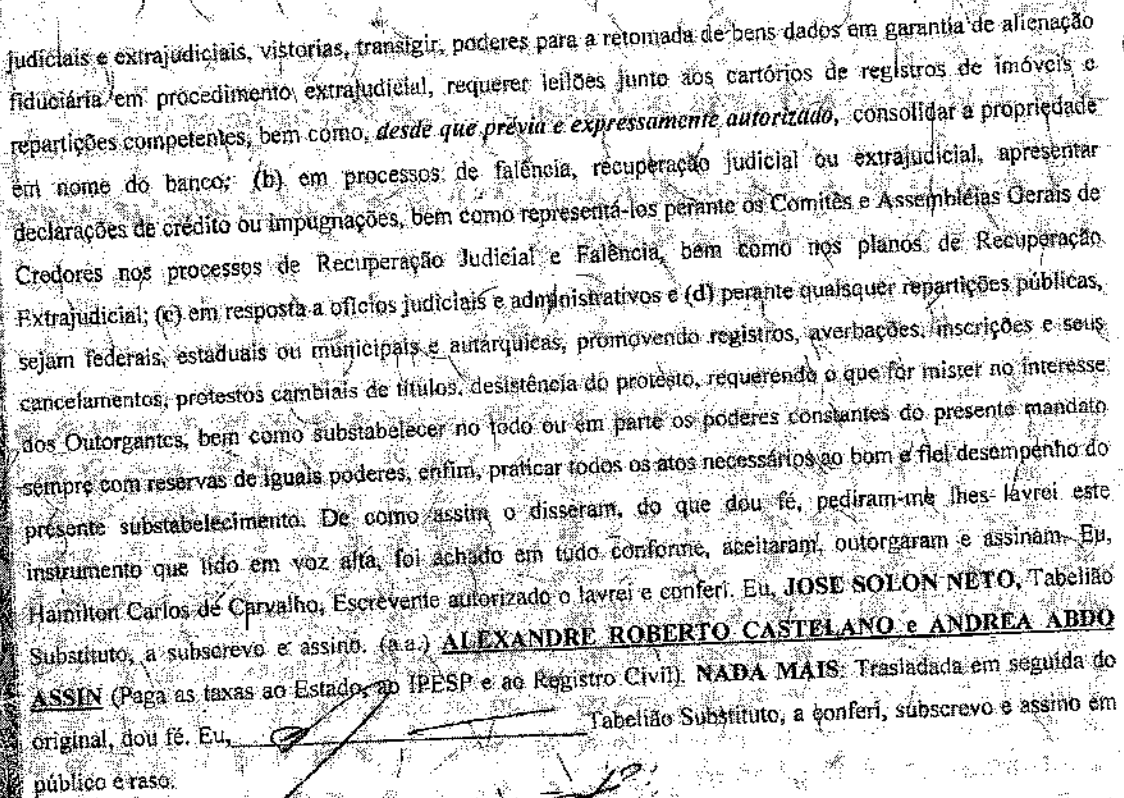 judiciais e extrajudiciais, vistorias, transigir, poderes para a retomada de bens dados em garantia de alienação
fiduciária em procedimento extrajudicial, requerer leilões junto aos cartórios de registros de imóveis e
repartições competentes, bem como, desde que prévia e expressamente autorizado, consolidar a propriedade
em nome do banco; (b) em processos de falência, recuperação judicial ou extrajudicial, apresentar
declarações de crédito ou impugnações, bem como representá-los perante os Comitês e Assembléias Gerais de
Credores nos processos de Recuperação Judicial e Falência, bem como nos planos de Recuperação
Extrajudicial; (c) em resposta a ofícios judiciais e administrativos e (d) perante quaisquer repartições públicas,
sejam federais, estaduais ou municipais e autárquicas, promovendo registros, averbações, inscrições e seus
cancelamentos, protestos cambiais de títulos, desistência do protesto, requerendo o que for mister no interesse
dos Outorgantes, bem como substabelecer no todo ou em parte os poderes constantes do presente mandato
sempre com reservas de iguais poderes, enfim, praticar todos os atos necessários ao bom e fiel desempenho do
presente substabelecimento. De como assim o disseram, do que dou fé, pediram-me lhes lavrei este
instrumento que lido em voz alta, foi achado em tudo conforme, aceitaram, outorgaram e assinam. Eu,
Hamilton Carlos de Carvalho, Escrevente autorizado o lavrei e conferi. Eu, JOSE SOLON NETO, Tabelião
Substituto, a subscrevo e assino. (a.a.) ALEXANDRE ROBERTO CASTELANO e ANDREA ABDO
ASSIN (Paga as taxas ao Estado, ao IPESP e ao Registro Civil). NADA MAIS. Trasladada em seguida do
original, dou fé. Eu, Tabelião Substituto, a conferi, subscrevo e assino em
público e raso.